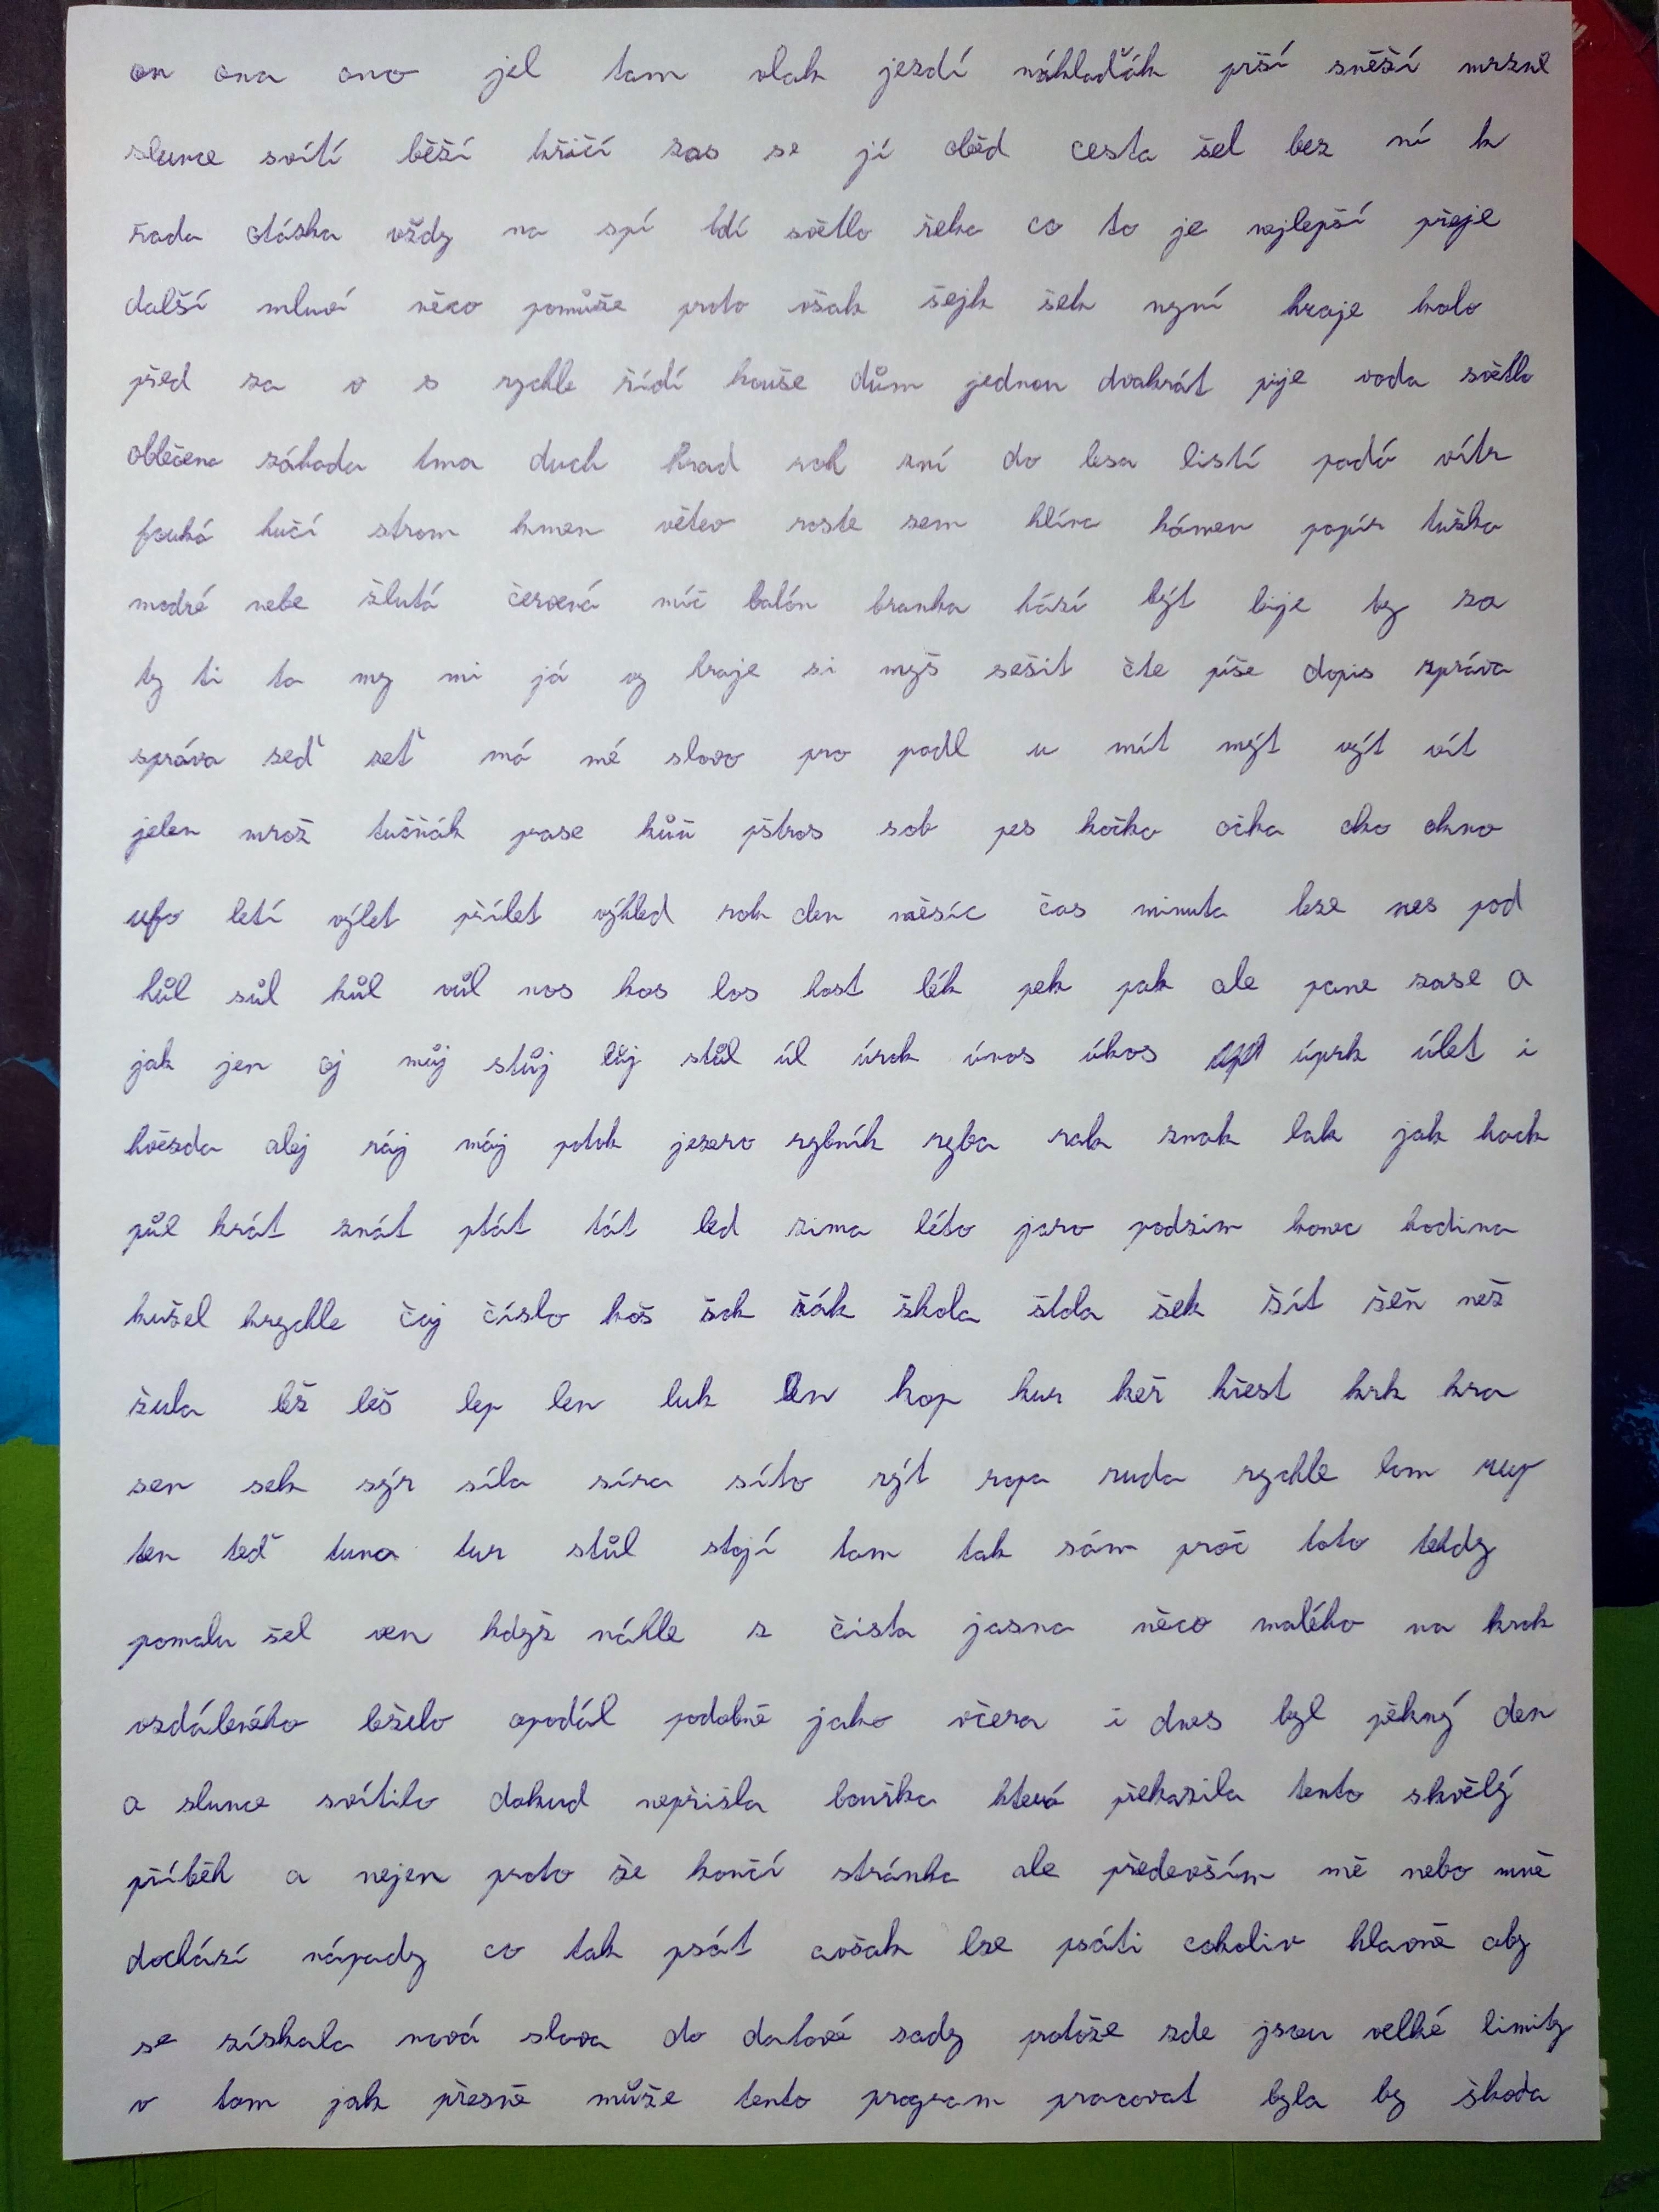 on ona ono jel tam vlak jezdí náklaďák prší sněží mrzne
slunce svítí běží křičí zas se jí oběd cesta šel bez ní k
řada otázka vždy na spí bdí světlo řeka co to je nejlepší přeje
další mluví něco pomůže proto však šejk šek nyní hraje kolo
před za v s rychle řídí kouše dům jednou dvakrát pije voda světlo
oblečena záhada tma duch hrad roh zní do lesa listí padá vítr
fouká hučí strom kmen větev roste sem hlína kámen papír tužka
modré nebe žlutá červená míč balón branka hází být bije by za
ty ti ta my mi já vy hraje si myš sešit čte píše dopis zpráva
správa seď zeť má mé slovo pro podl u mít mýt výt vít
jelen mrož tučňák prase kůň pštros sob pes kočka očka oko okno
ufo letí výlet přílet výhled rok den měsíc čas minuta leze nes pod
hůl sůl kůl vůl nos kos los host lék pek pak ale pane zase a
jak jen oj můj stůj lůj stůl úl úrok únos úkos úprk úlet i
hvězda alej ráj máj potok jezero rybník ryba rak znak lak jak hack
půl krát znát ptát tát led zima léto jaro podzim konec hodina
kužel krychle čaj číslo koš šok žák škola štola šek šít žeň než
žula lež leš lep len luk len kop kur keř křest krk kra
sen sek sýr síla síra síto rýt ropa ruda rychle lom rup
ten teď tuna tur stůl stojí tam tak sám proč toto tehdy
pomalu šel ven když náhle z čista jasna něco malého na krok
vzdáleného leželo opodál podobně jako včera i dnes byl pěkný den
a slunce svítilo dokud nepřišla bouřka která překazila tento skvělý
příběh a nejen proto že končí stránka ale především mě nebo mně
dochází nápady co tak psát avšak lze psáti cokoliv hlavně aby
se získala nová slova do datové sady protože zde jsou velké limity
v tom jak přesně může tento program pracovat byla by škoda